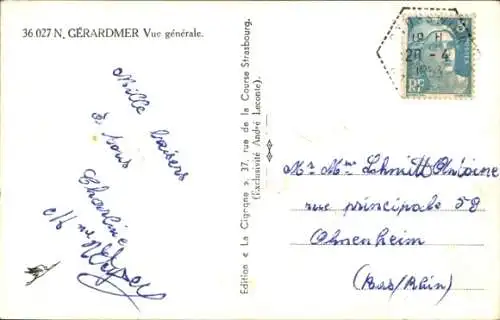 36.027 N. GÉRARDMER Vue générale.
Mille baisers
à tous
Charline
Edition « La Cigogne », 37, rue de la Course Strasbourg.
(Exclusivité André Leconte).
19 H
28 - 4
POSTES
RF
Mr Mme Schmitt Antoine
rue principale 58
Ohnenheim
(Bas/Rhin)